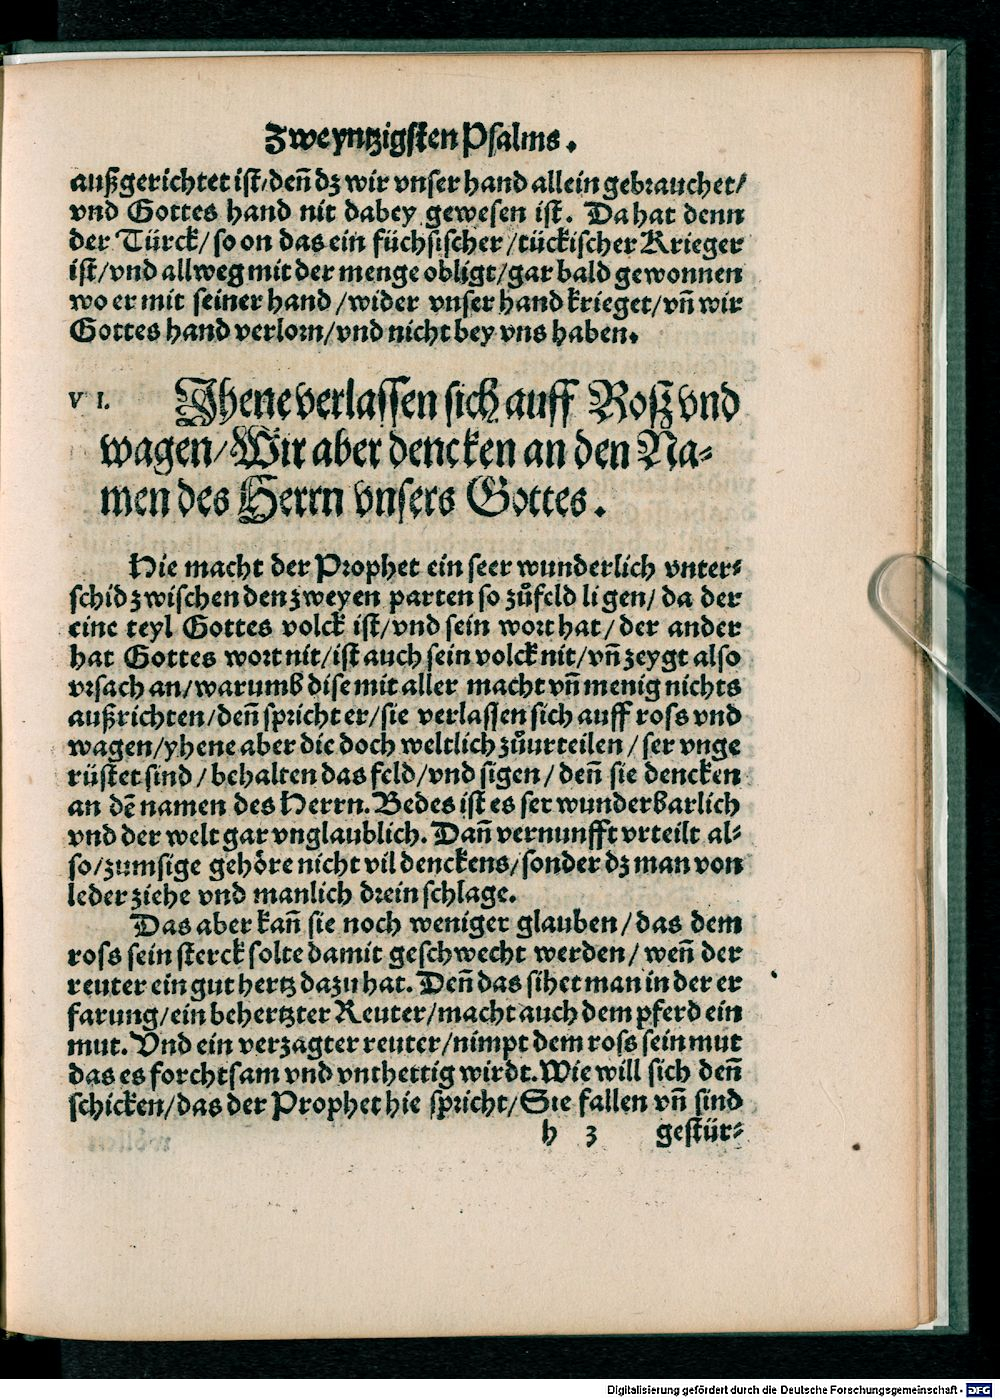 Zweyntzigsten Psalms.
außgerichtet ist/ deñ dz wir vnser hand allein gebrauchet/
vnd Gottes hand nit dabey gewesen ist. Da hat denn
der Türck/ so on das ein füchsischer/ tückischer Krieger
ist/ vnd allweg mit der menge obligt/ gar bald gewonnen
wo er mit seiner hand/ wider vnser hand krieget/ vñ wir
Gottes hand verlorn/ vnd nicht bey vns haben.
VI. Jhene verlassen sich auff Roß vnd
wagen/ Wir aber dencken an den Na-
men des Herrn vnsers Gottes.
Hie macht der Prophet ein seer wunderlich vnter-
schid zwischen den zweyen parten so zůfeld ligen/ da der
eine teyl Gottes volck ist/ vnd sein wort hat/ der ander
hat Gottes wort nit/ ist auch sein volck nit/ vñ zeygt also
vrsach an/ warumb dise mit aller macht vñ menig nichts
außrichten/ deñ spricht er/ sie verlassen sich auff ross vnd
wagen/ yhene aber die doch weltlich zůurteilen/ ser vnge
rüstet sind/ behalten das feld/ vnd sigen/ deñ sie dencken
an dẽ namen des Herrn. Bedes ist es ser wunderbarlich
vnd der welt gar vnglaublich. Dañ vernunfft vrteilt al-
so/ zum sige gehöre nicht vil denckens/ sonder dz man von
leder ziehe vnd manlich drein schlage.
Das aber kañ sie noch weniger glauben/ das dem
ross sein sterck solte damit geschwecht werden/ weñ der
reuter ein gut hertz dazu hat. Deñ das sihet man in der er
farung/ ein behertzter Reuter/ macht auch dem pferd ein
mut. Vnd ein verzagter reuter/ nimpt dem ross sein mut
das es forchtsam vnd vnthettig wirdt. Wie will sich deñ
schicken/ das der Prophet hie spricht/ Sie fallen vñ sind
h 3 gestür-
Digitalisierung gefördert durch die Deutsche Forschungsgemeinschaft - DFG